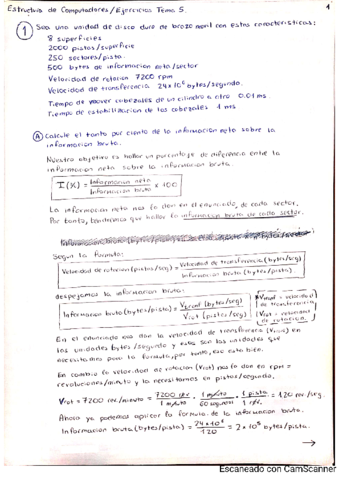 Estructura de Computadores/Ejercicios Tema 5.
1
① Sea una unidad de disco duro de brazo movil con estas caracteristicas:
8 superficies
2000 pistas/superficie
250 sectores/pista
500 bytes de informacion neta/sector
Velocidad de rotacion 7200 rpm
Velocidad de transferencia 24x10⁶ bytes/segundo.
Tiempo de mover cabezales de un cilindro a otro 0.01 ms
Tiempo de estabilizacion de los cabezales 1 ms
Ⓐ Calcule el tanto por ciento de la informacion neta sobre la
informacion bruta.
Nuestro objetivo es hallar un porcentaje de diferencia entre la
informacion neta sobre la informacion bruta.
I(%) = Informacion neta / Informacion bruta x 100
La informacion neta nos la dan en el enunciado, de cada sector.
Por tanto, tendremos que hallar la informacion bruta de cada sector.
Segun la formula:
Velocidad de rotacion (pistas/seg) = Velocidad de transferencia (bytes/seg) / Informacion bruta (bytes/pista)
despejamos la informacion bruta:
Informacion bruta (bytes/pista) = Vtransf (bytes/seg) / Vrot (pistas/seg)
Vtransf = velocidad
de transferencia
Vrot = velocidad
de rotacion.
En el enunciado nos dan la velocidad de transferencia (Vtransf) en
las unidades bytes/segundo y estas son las unidades que
necesitamos para la formula, por tanto, eso esta bien.
En cambio la velocidad de rotacion (Vrot) nos la dan en rpm =
revoluciones/minuto y la necesitamos en pistas/segundo.
Vrot = 7200 rev/minuto = 7200 rev / 1 minuto · 1 minuto / 60 segundos · 1 pista / 1 rev. = 120 rev/seg.
Ahora ya podemos aplicar la formula de la informacion bruta.
Informacion bruta (bytes/pista) = 24x10⁶ / 120 = 2x10⁵ bytes/pista.
→
Escaneado con CamScanner